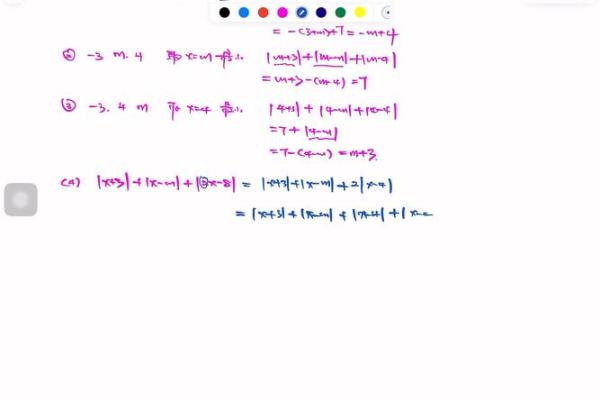 = -(3+m)+7 = -m+4
② -3 m. 4 取 x=m |m+3|+|m-m|+|m-4|
= m+3-(m-4) = 7
③ -3. 4 m 取 x=4 |4+3|+|4-m|+|4-4|
= 7+|4-m|
= 7-(4-m) = m+3.
(4) |x+3|+|x-m|+|2x-8| = |x+3|+|x-m|+2|x-4|
= |x+3|+|x-m|+|x-4|+|x-